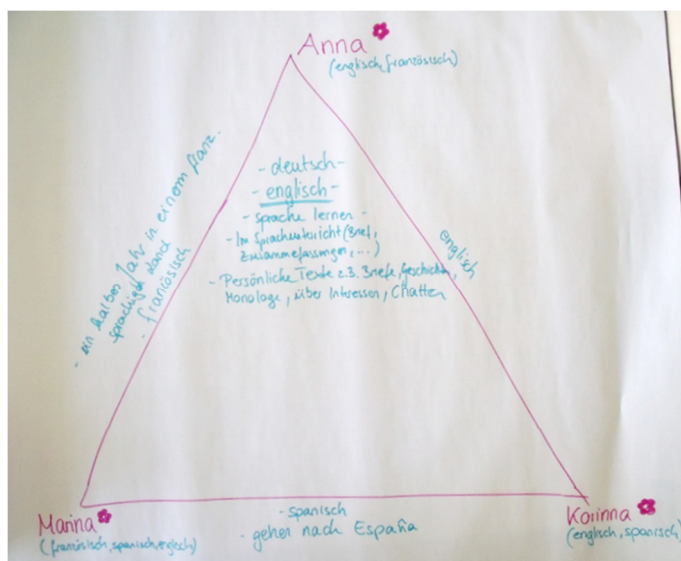 Anna
(englisch, französisch)
- ein halbes Jahr in einem franz.
sprachigen Land
- französisch
- deutsch -
- englisch -
- sprache lernen -
- Im Sprachunterricht (Brief,
Zusammefassungen, ...)
- Persönliche Texte z.B. Briefe, Geschichten,
Monologe, über Interessen, Chatten
englisch
- spanisch
- gehen nach España
Marina
(französisch, spanisch, englisch)
Korinna
(englisch, spanisch)